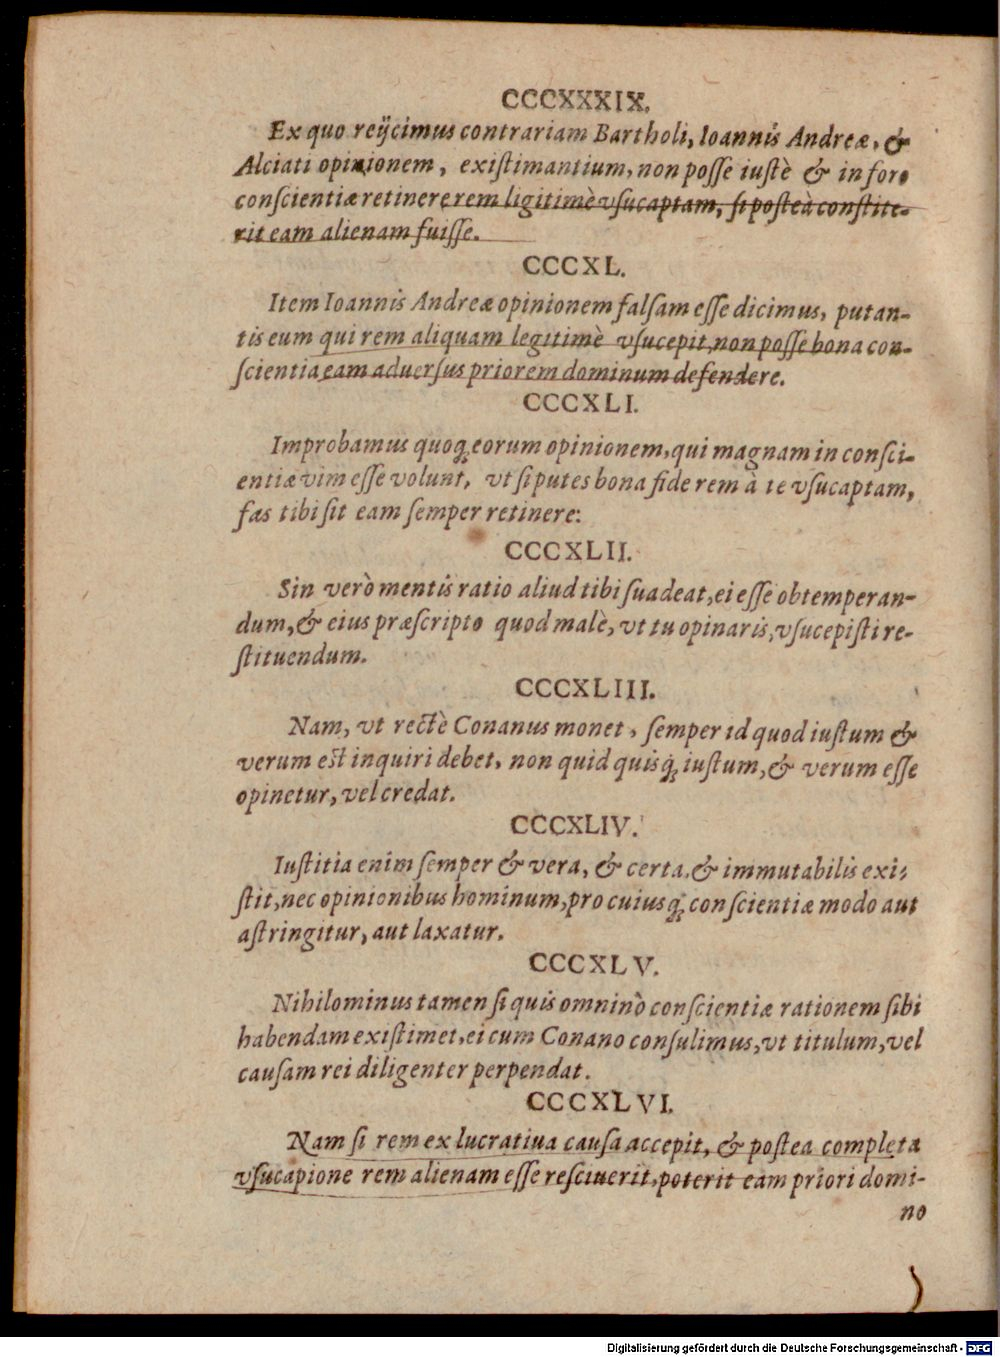 CCCXXXIX.
Ex quo reijcimus contrariam Bartholi, Ioannis Andreæ, &
Alciati opinionem, existimantium, non posse iustè & in foro
conscientiæ retinere rem ligitimè vsucaptam, si posteà constite-
rit eam alienam fuisse.
CCCXL.
Item Ioannis Andreæ opinionem falsam esse dicimus, putan-
tis eum qui rem aliquam legitimè vsucepit, non posse bona con-
scientia eam aduersus priorem dominum defendere.
CCCXLI.
Improbamus quoq; eorum opinionem, qui magnam in consci-
entiæ vim esse volunt, vt si putes bona fide rem à te vsucaptam,
fas tibi sit eam semper retinere:
CCCXLII.
Sin verò mentis ratio aliud tibi suadeat, ei esse obtemperan-
dum, & eius præscripto quod malè, vt tu opinaris, vsucepisti re-
stituendum.
CCCXLIII.
Nam, vt rectè Conanus monet, semper id quod iustum &
verum est inquiri debet, non quid quisq; iustum, & verum esse
opinetur, vel credat.
CCCXLIV.
Iustitia enim semper & vera, & certa, & immutabilis exi-
stit, nec opinionibus hominum, pro cuiusq; conscientiæ modo aut
astringitur, aut laxatur.
CCCXLV.
Nihilominus tamen si quis omninò conscientiæ rationem sibi
habendam existimet, ei cum Conano consulimus, vt titulum, vel
causam rei diligenter perpendat.
CCCXLVI.
Nam si rem ex lucratiua causa accepit, & postea completa
vsucapione rem alienam esse resciuerit, poterit eam priori domi-
no
Digitalisierung gefördert durch die Deutsche Forschungsgemeinschaft - DFG